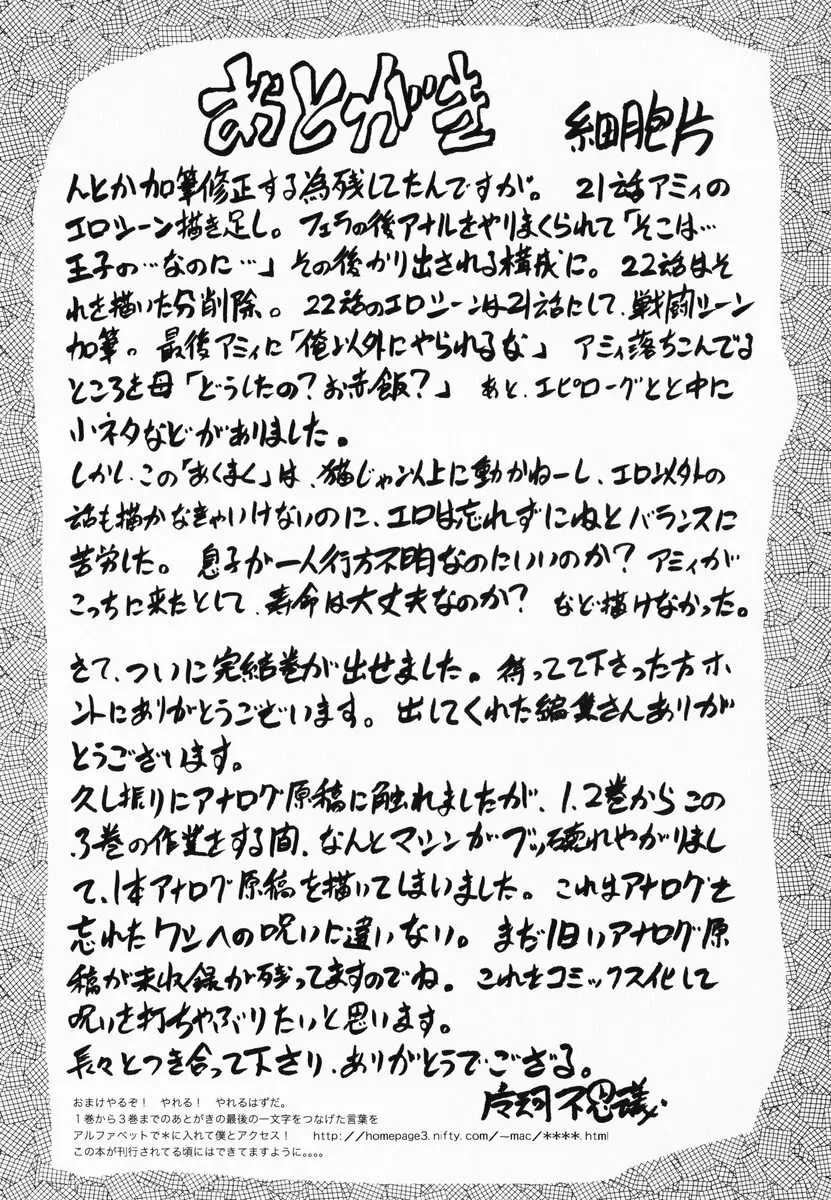 あとがき 細胞片
んとか加筆修正する為残してたんですが。 21話アミィの
エロシーン描き足し。 フェラの後アナルをやりまくられて「そこは…
王子の…なのに…」その後かり出される構成に。 22話はそ
れを描いた分削除。 22話のエロシーンは21話にして、戦闘シーン
加筆。 最後アミィに「俺以外にやられるな」 アミィ落ちこんでる
ところを母「どうしたの?お赤飯?」 あと、エピローグとと中に
小ネタなどがありました。
しかし、この「あくまく」は、猫じゃン以上に動かねーし、エロ以外の
話も描かなきゃいけないのに、エロは忘れずにねとバランスに
苦労した。 息子が一人行方不明なのにいいのか? アミィが
こっちに来たとして、寿命は大丈夫なのか? など描けなかった。
さて、ついに完結巻が出せました。待ってて下さった方ホ
ントにありがとうございます。出してくれた編集さんありが
とうございます。
久し振りにアナログ原稿に触れましたが、1、2巻からこの
3巻の作業をする間、なんとマシンがブッ壊れやがりまし
て、1本アナログ原稿を描いてしまいました。これはアナログを
忘れたワシへの呪いに違いない。 まだ旧いアナログ原
稿が未収録が残ってますのでね。 これをコミックス化して
呪いを打ちやぶりたいと思います。
長々とつき合って下さり、ありがとうでござる。
不思議
おまけやるぞ! やれる! やれるはずだ。
1巻から3巻までのあとがきの最後の一文字をつなげた言葉を
アルファベットで*に入れて僕とアクセス! http://homepage3.nifty.com/~mac/****.html
この本が刊行されてる頃にはできてますように。。。。